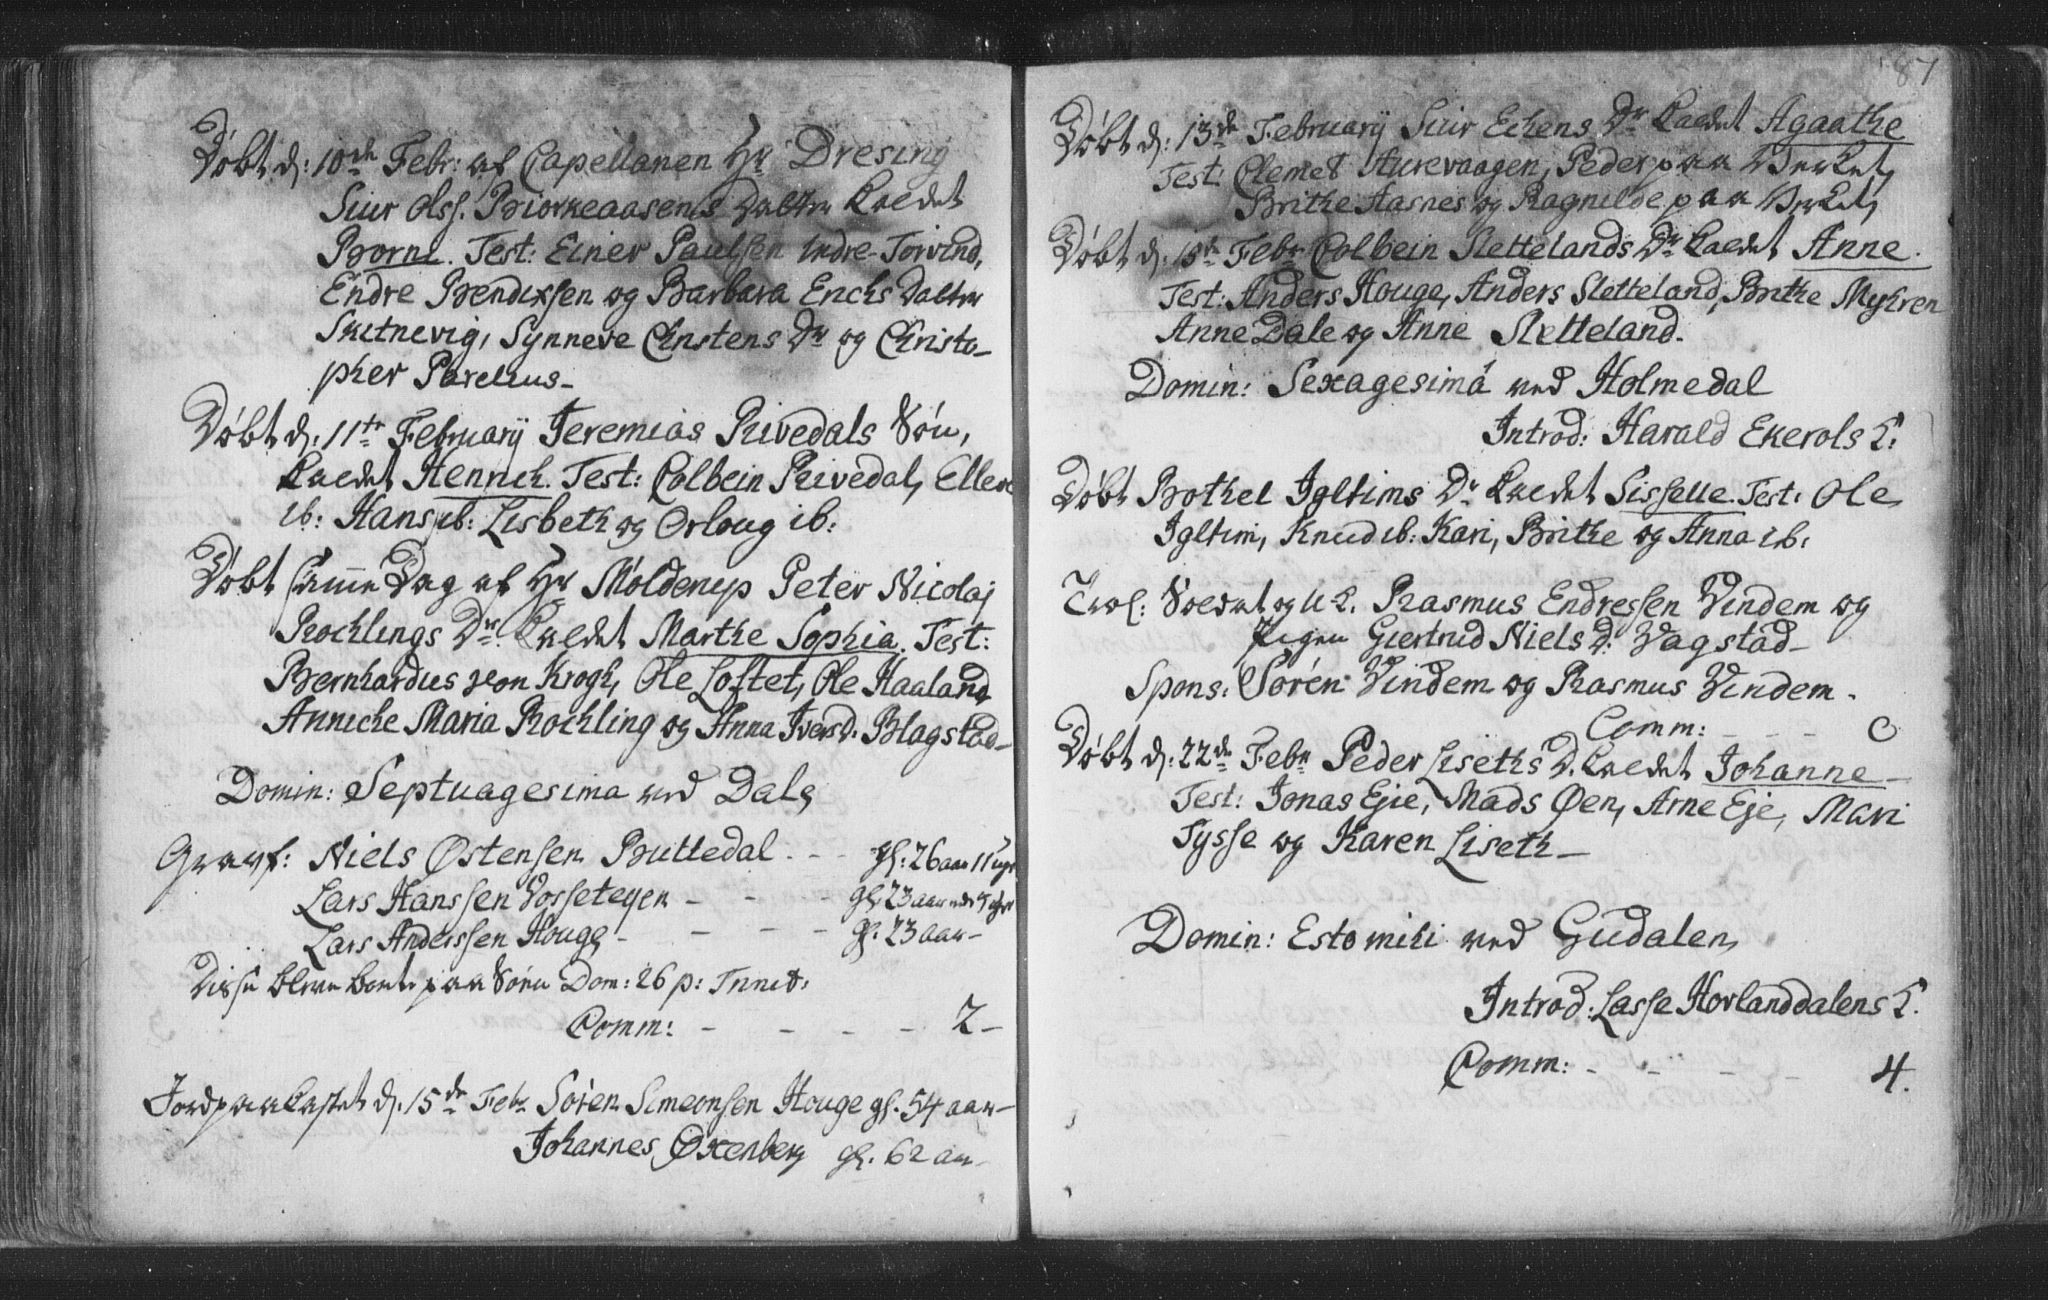 Døbt d: 10de Febr: af Capellanen Hr Dresing
Siur Olss. Biørkeaasens Datter kaldet
Børni. Test: Einer Paulsen Indre-Torvind,
Endre Bendixsen og Barbara Erichs Datter
Skitnevig, Synneve Christens Dr og Christo-
pher Parelius-
Døbt d: 11te Februarij Jeremias Rivedals Søn,
kaldet Henrich. Test: Colbein Rivedal, Ellend
ib: Hans ib: Lisbeth og Orloug ib:
Døbt samme Dag af Hr Møldenup Peter Nicolaj
Rochlings Dr kaldet Marthe Sophia. Test:
Bernhardus von Krogh, Ole Loftet, Ole Haaland
Anniche Maria Rochling og Anna Ivers D. Blagstad-
Domin: Septuagesima ved Dale
Gravf: Niels Østensen Buttedal - - gl: 26 aar 11 uger
Lars Hanssen Vossetegen - - - gl: 23 aar
Lars Anderssen Houge - - - - gl: 23 aar-
Disse bleve borte paa Søen Dom: 26 p: Trinit:
Comm: - - - - 2-
Jordpaakastet d. 15de Febr Søren Simeonsen Houge gl. 54 aar-
Johannes Oxenberg gl. 62 aar-
87
Døbt d: 13de Februarij Siur Echens Dr kaldet Agaathe
Test: Clemet Aurevaagen, Peder paa Verket,
Brithe Aasnes og Ragnilde paa Verket,
Døbt d. 15de Febr Colbein Slettelands Dr kaldet Anne.
Test: Anders Houge, Anders Sletteland, Brithe Myhren
Anne Dale og Anne Sletteland.
Domin: Sexagesimá ved Holmedal
Introd: Harald Ekerols K:
Døbt Bothel Igltims Dr kaldet Sisselle. Test: Ole
Igltim, Knud ib: Kari, Brithe og Anna ib:
Trol: Soldat og U K. Rasmus Endressen Vindem og
Pigen Giertrud Niels D. Vagstad-
Spons: Søren Vindem og Rasmus Vindem.
Comm: - - - 0
Døbt d: 22de Febr Peder Liseths D. kaldet Johanne-
Test: Jonas Ejie, Mads Øen, Arne Eje, Mari
Tysse og Karen Liseth-
Domin: Estomihi ved Gudalen,
Introd: Lasse Hovlanddalens K.
Comm: - - - - 4.